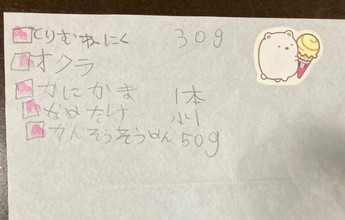 とりむねにく 30g
オクラ
かにかま 1本
なめたけ 小1
かんそうそうめん 50g